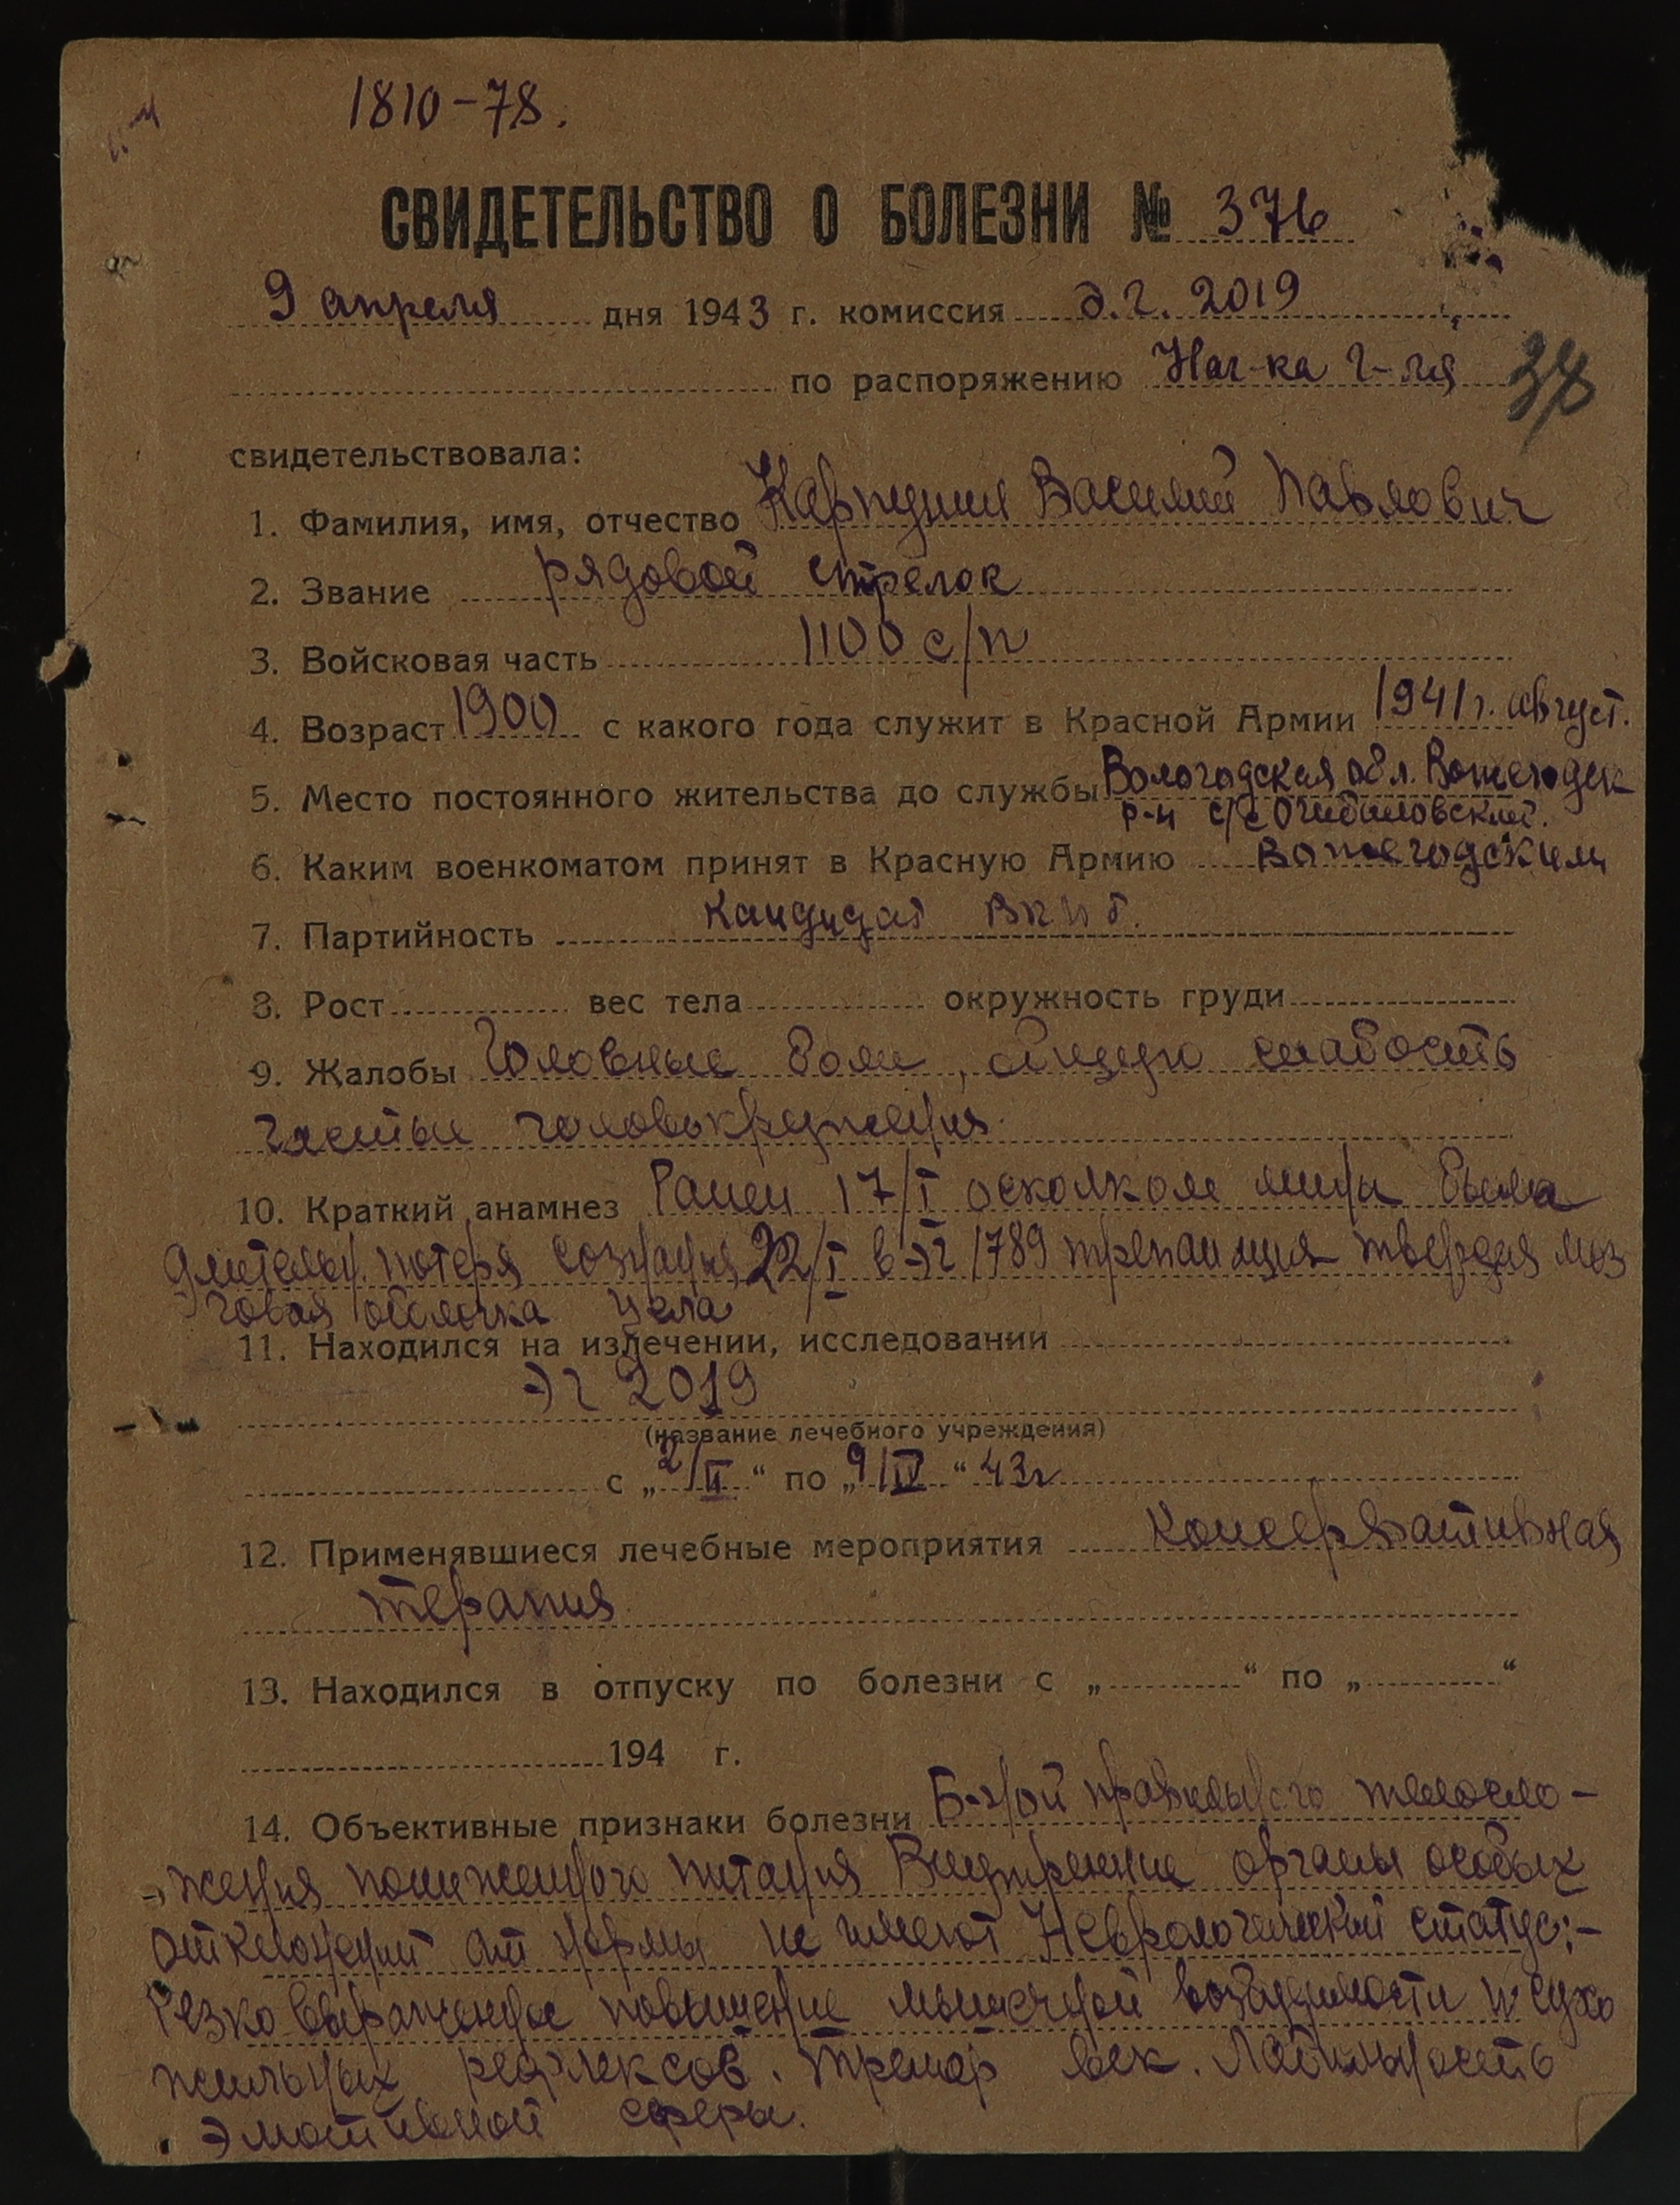 1810-78.
СВИДЕТЕЛЬСТВО О БОЛЕЗНИ № 376
9 апреля дня 1943 г. комиссия э.г. 2019
по распоряжению Нач-ка г-ля
38
свидетельствовала:
1. Фамилия, имя, отчество Карпушин Василий Павлович
2. Звание рядовой стрелок
3. Войсковая часть 1100 с/п
4. Возраст 1900 с какого года служит в Красной Армии 1941 г. август.
5. Место постоянного жительства до службы Вологодская обл. Вожегодск
р-н с/с
6. Каким военкоматом принят в Красную Армию Вожегодским
7. Партийность кандидат ВКПб.
8. Рост вес тела окружность груди
9. Жалобы Головные боли, общую слабость
частые головокружения.
10. Краткий анамнез Ранен 17/I осколком мины Была
длительн. потеря сознания 22/I в эг 1789 трепанация твердая моз
говая оболочка цела
11. Находился на излечении, исследовании
эг 2019
(название лечебного учреждения)
с „2/II“ по „9/IV“ 43г
12. Применявшиеся лечебные мероприятия Консервативная
терапия
13. Находился в отпуску по болезни с „ “ по „ “
194 г.
14. Объективные признаки болезни Б-ной правильного телосло-
жения пониженного питания Внутренние органы особых
отклонений от нормы не имеют Неврологический статус:-
Резко выраженное повышение мышечной возбудимости и сухо
жильных рефлексов. Тремор век. Лабильность
эмотивной сферы.